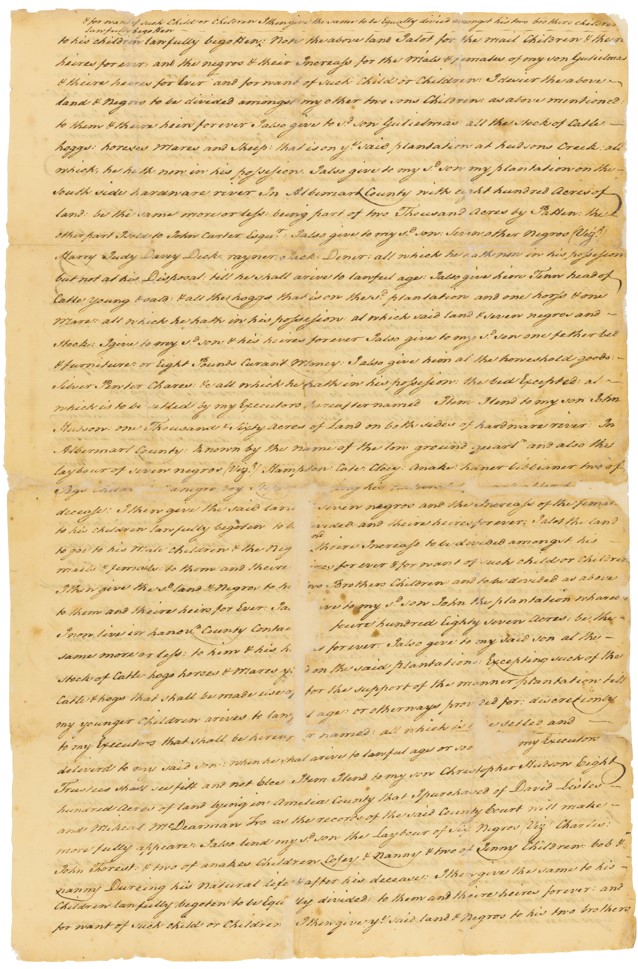 & for want of such Child or Children I then give the same to be Equally divided amongst his two brothers children
lawfully begotten
to his children lawfully begotten: Note the above land I alot for the mail Children & there
heires for ever: and the negros & their Increass for the Males & females of my son Gutielmas
& theire heires for Ever and for want of such Child or Children: I desier the above
land & Negros to be divided amongst my other two sons Children: as above mentioned
to them & theire heirs forever I also give to sd. son Gutielmas all the stock of Catle
hoggs: horeses Mares and Sheep: that is on ye. said plantation at hudsons Creek: all
which he hath now in his possession I also give to my sd. son my plantation on the
South side hardware river In Albemarl County with eight hundred Acres of
land: be the same more or less: being part of two Thousand Acres by Patten: the
other part I sold to John Carter Esqur. I also give to my sd. son: Seven other Negros (Viz.)
Marry Judy Davy Dick rayner Jack Diner: all which he hath now in his possession
but not at his Disposal: till he shall arive to lawful age: I also give him Tenn head of
Catle young & ould & all the hoggs that is on the sd. plantation and one horss & one
Mare: all which he hath in his possession at which said land & seven negros and
Stock: I give to my sd. son & his heires forever I also give to my sd. son one fether bed
& furniture: or Eight Pounds Curant Money: I also give him al the household goods:
Silver Penter Chares &c all which he hath in his possession: the bed Excepted: al
which is to be setled by my Executors hereafter named Item I lend to my son John
Hudson one Thousand & Sixty Acres of Land on both sides of hardware river: In
Albermarl County: known by the name of the low ground quartr. and also the
laybour of seven negros (Viz.) Hampton Cate Cloey: Anake: haner two of
deceass: I then give the said land seven negros and the Increass of the females
to his children lawfully begoten to be divided and theire heires forever: I alot the land
to go to his Male Children & the Neg theire Increass to be divided amongst his
mails & females to them and theire for ever & for want of such child or Children
I then give the sd. land & Negros to his two Brothers Children and to be divided as above
to them and theire heirs for Ever I also give to my sd. son John the plantation whareon
I now live in hanovr. County Containing foure hundred Eighty Seven Acres; be: the
same more or less: to them & his heires forever: I also give to my said son al the
Stock of Catle hogs horses & Mares on the said plantation: Excepting such of the
Catle & hogs that shall be made use of for the support of the manner plantation tell
my younger Children arives to lawful age: or otherways provided for: discrecionly
to my Executors that shall be hereafter named: all which is to be setled and
deliverd to my said son: when he shal arive to lawful age or my Executors
Trustees shall see fitt and not else Item I lend to my son Christopher Hudson Eight
hundred Acres of land lying in Amelia County that I purchased of David
and Micheal McDearman &c as the records of the said County Court will make
more fully appeare: I also lend my sd. son the Laybour of Six Negros Viz. Charles:
John Forest: & two of anakes Children Cofey & Nanny & two of Jenny Children: bob &
nanny Dureing his natural life & after his deceass: I then give the same to his
Children lawfully begoten to be Equily divided: to them and theire heires forever: and
for want of such child or Children I then give ye. said land & Negros to his two brothers